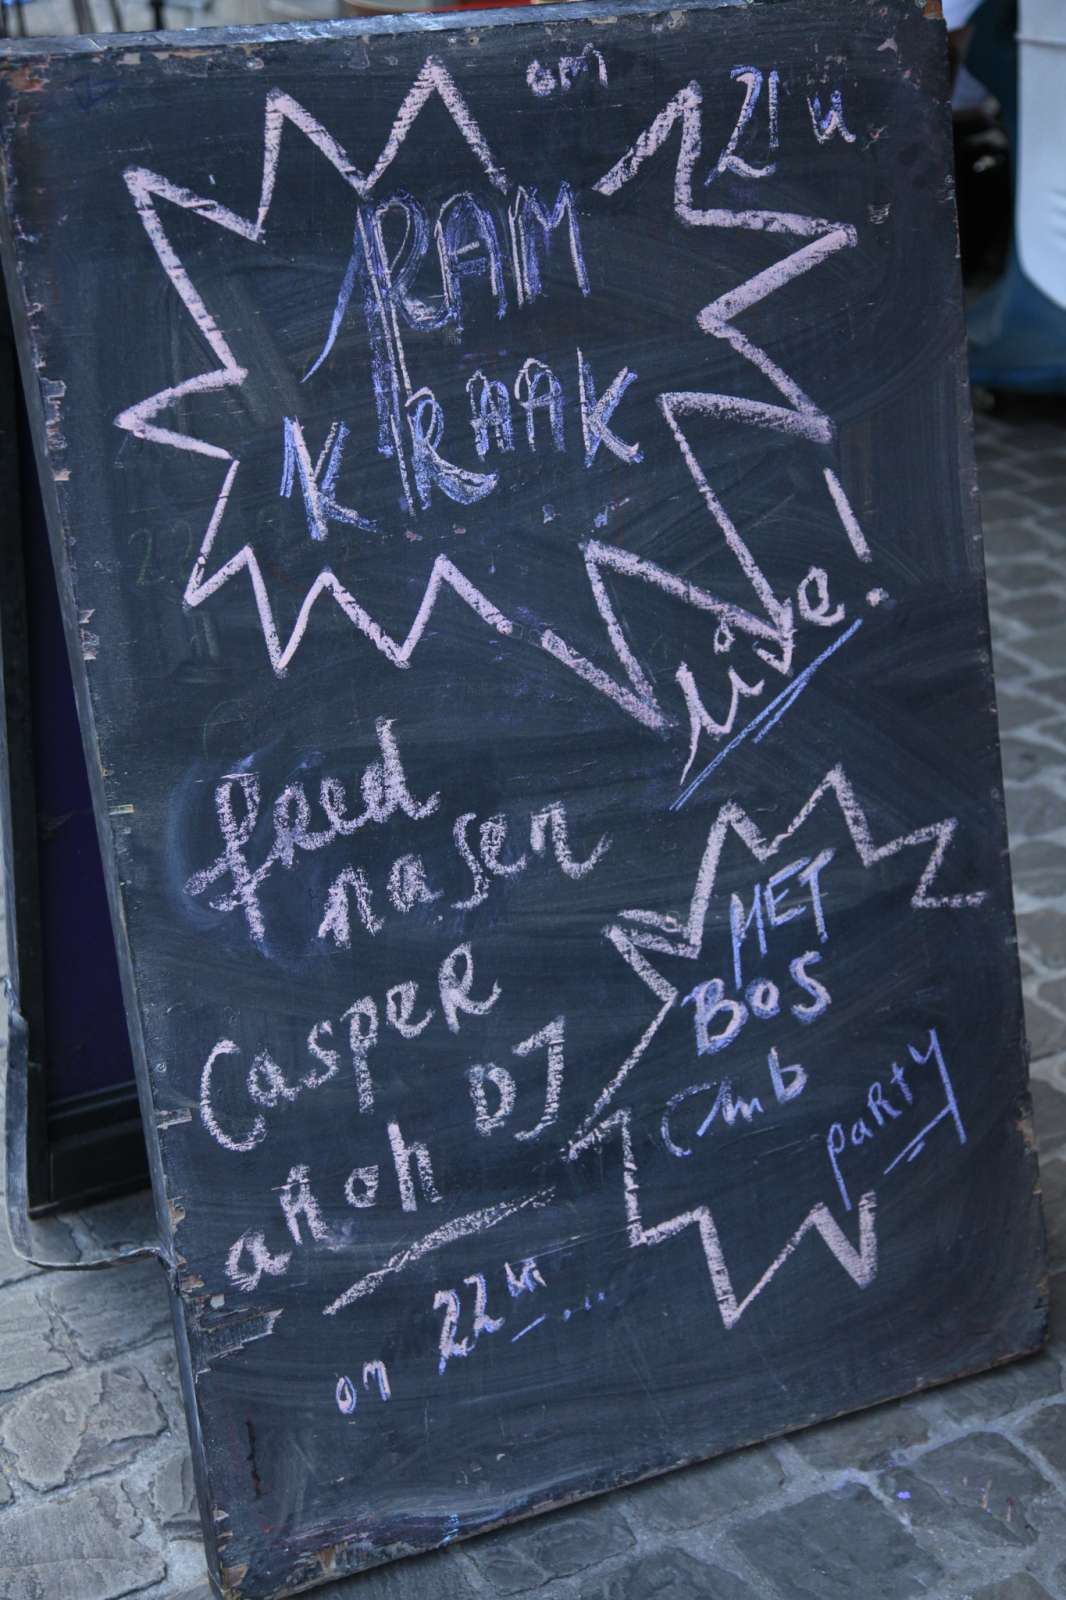 om 21 u
RAM
KRAAK
live!
freed
nasen
CaspeR
DJ
om 22 u
MET
BOS
Club
paRty